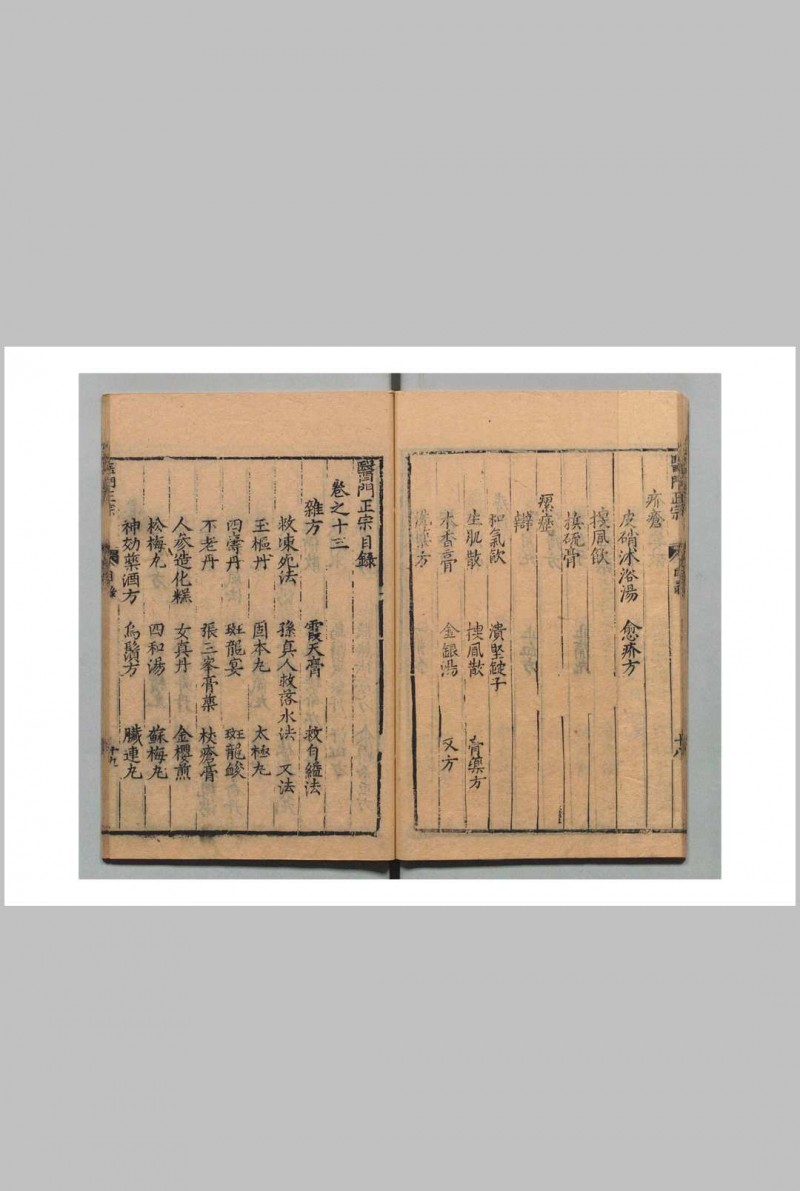 疥瘡
皮硝沐浴湯 愈疥方
搜風飲
換硫膏
瘰癧
辯
和氣飲 潰堅錠子
生肌散 搜風散 膏藥方
木香膏 金銀湯 又方
洗藥方
醫門正宗目錄
卷之十三
雜方 霞天膏 救自縊法
救凍死法 孫真人救落水法 又法
玉樞丹 固本丸 太極丸
四壽丹 斑龍宴
不老丹 張三峯膏藥 杖瘡膏
人參造化糕 女真丹 金櫻煎
松梅丸 四和湯 蘇梅丸
神効藥酒方 烏鬚方 臟連丸
醫門正宗
目錄
十九